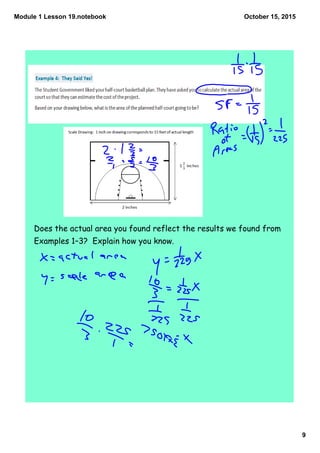 Module 1 Lesson 19.notebook
October 15, 2015
1/15 · 1/15
Example 4: They Said Yes!
The Student Government liked your half-court basketball plan. They have asked you to calculate the actual area of the
court so that they can estimate the cost of the project.
SF = 1/15
Based on your drawing below, what is the area of the planned half-court going to be?
Ratio of Areas = (1/15)² = 1/225
Scale Drawing: 1 inch on drawing corresponds to 15 feet of actual length
2 · 1 2/3 =
2/1 · 5/3 = 10/3
1 2/3 inches
2 inches
Does the actual area you found reflect the results we found from
Examples 1–3? Explain how you know.
x = actual area
y = scale area
y = 1/225 x
10/3 = 1/225 x
1/225 1/225
10/3 · 225/1 =
= x
9